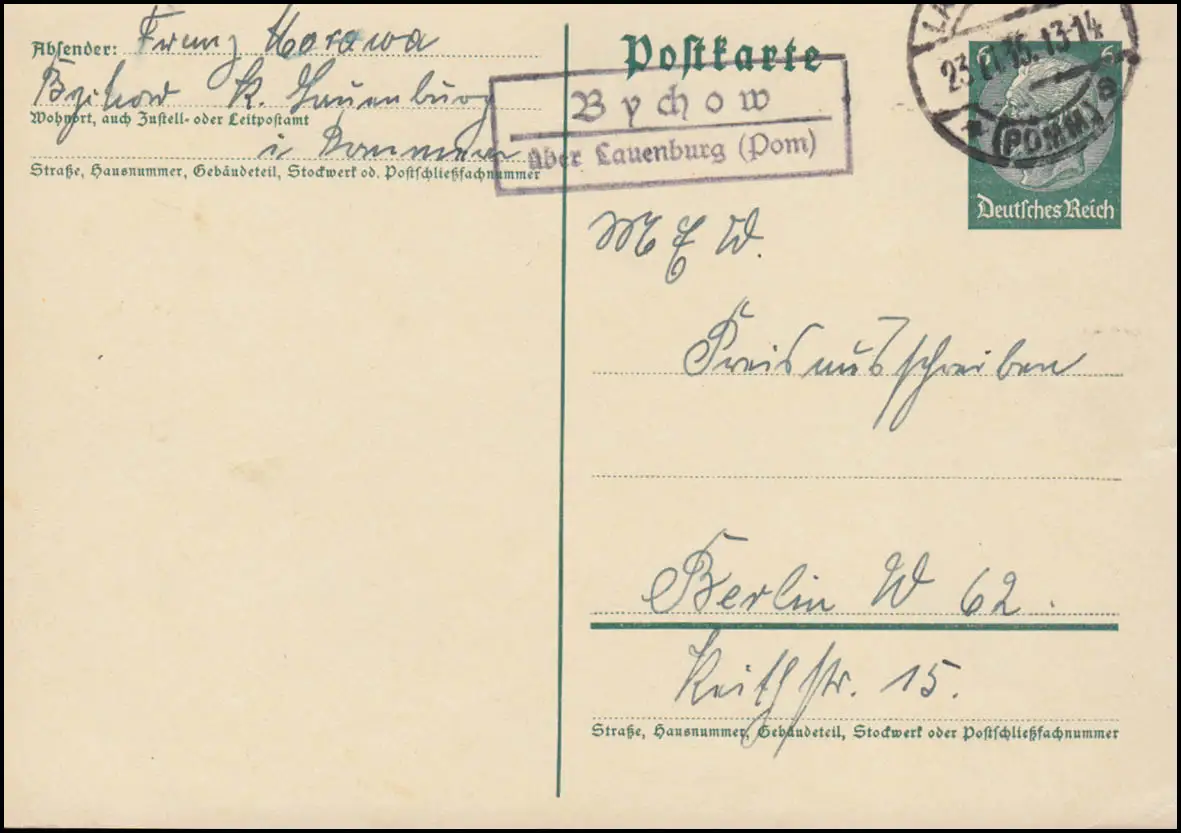 Absender: Franz Morawa
Bychow K. Lauenburg
Wohnort, auch Zustell- oder Leitpostamt
i Pommern
Straße, Hausnummer, Gebäudeteil, Stockwerk od. Postschließfachnummer
Postkarte
Bychow
über Lauenburg (Pom)
LA
23. 13-14
(POMM) a
6 6
Deutsches Reich
M E W.
Preisausschreiben
Berlin W 62.
Keithstr. 15.
Straße, Hausnummer, Gebäudeteil, Stockwerk oder Postschließfachnummer